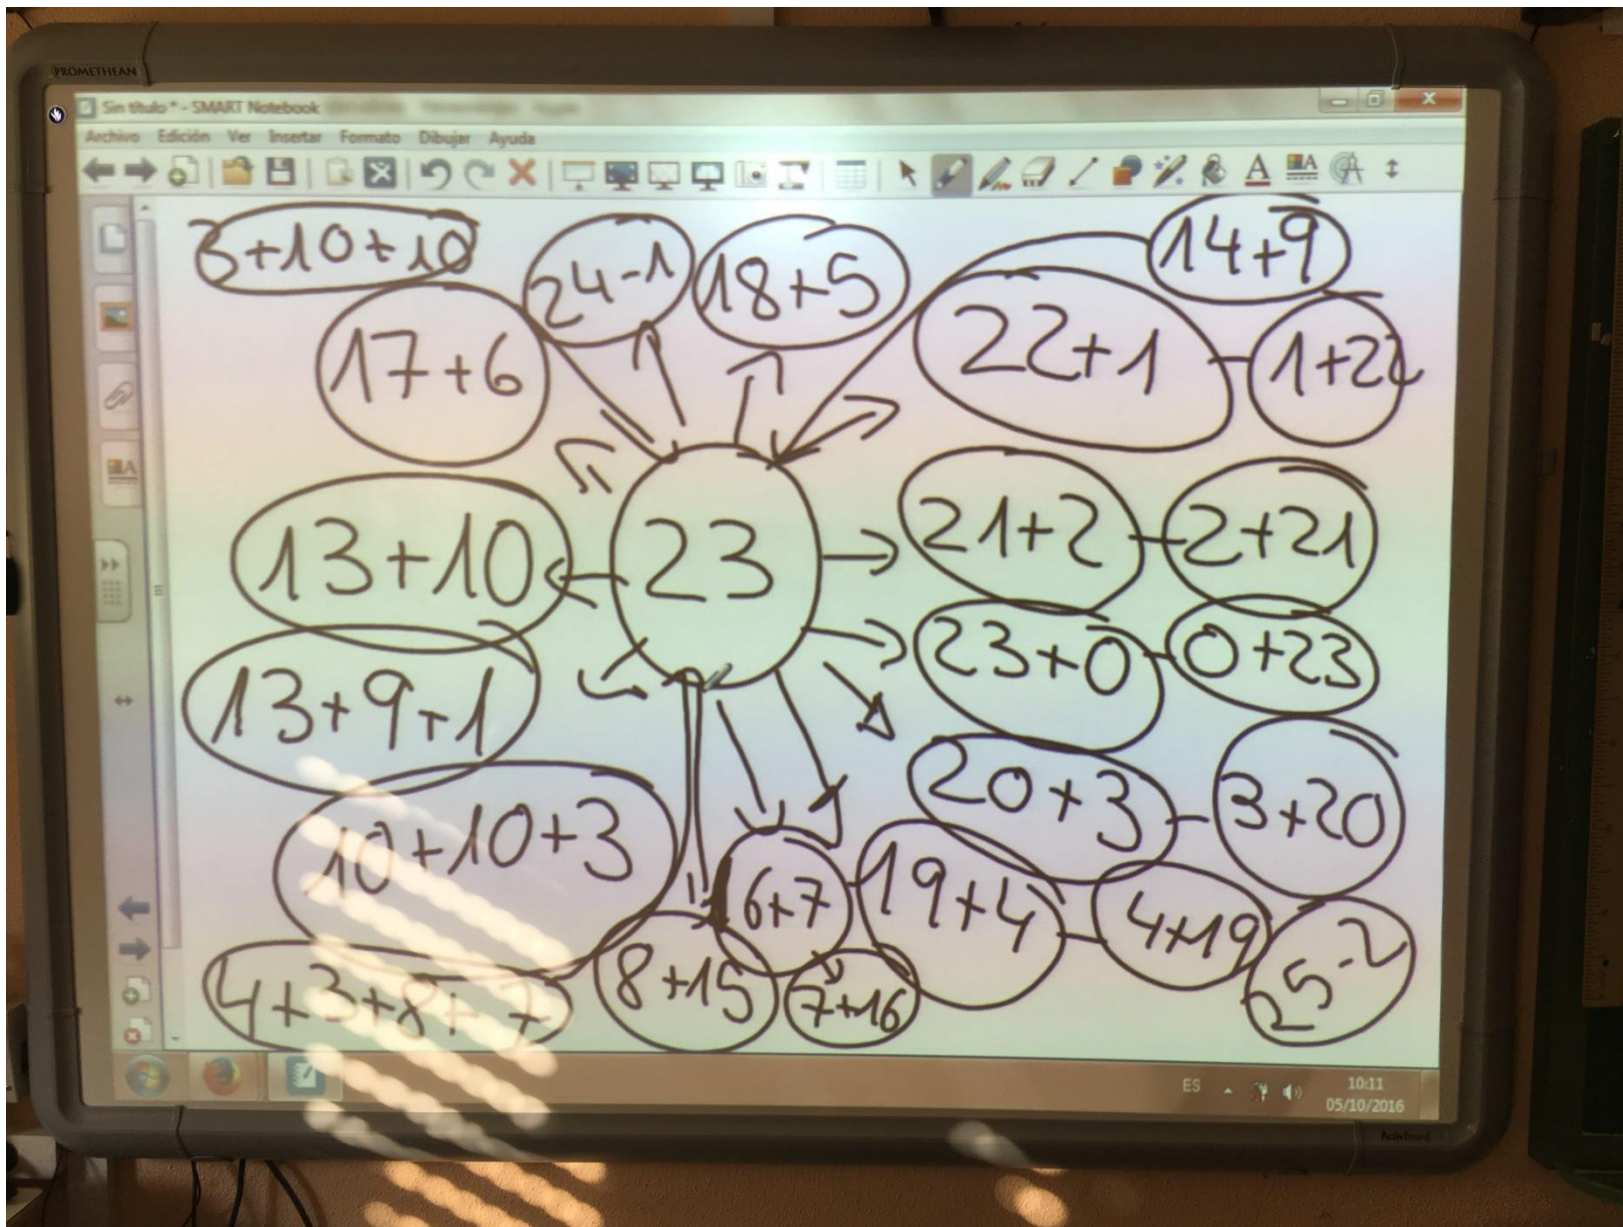 PROMETHEAN
Sin título * - SMART Notebook
Archivo Edición Ver Insertar Formato Dibujar Ayuda
3+10+10
24-1
18+5
14+9
17+6
22+1
1+22
13+10
23
21+2
2+21
13+9+1
23+0
0+23
10+10+3
20+3
3+20
16+7
19+4
4+19
25-2
4+3+8+7
8+15
7+16
ES
10:11
05/10/2016
ActivBoard